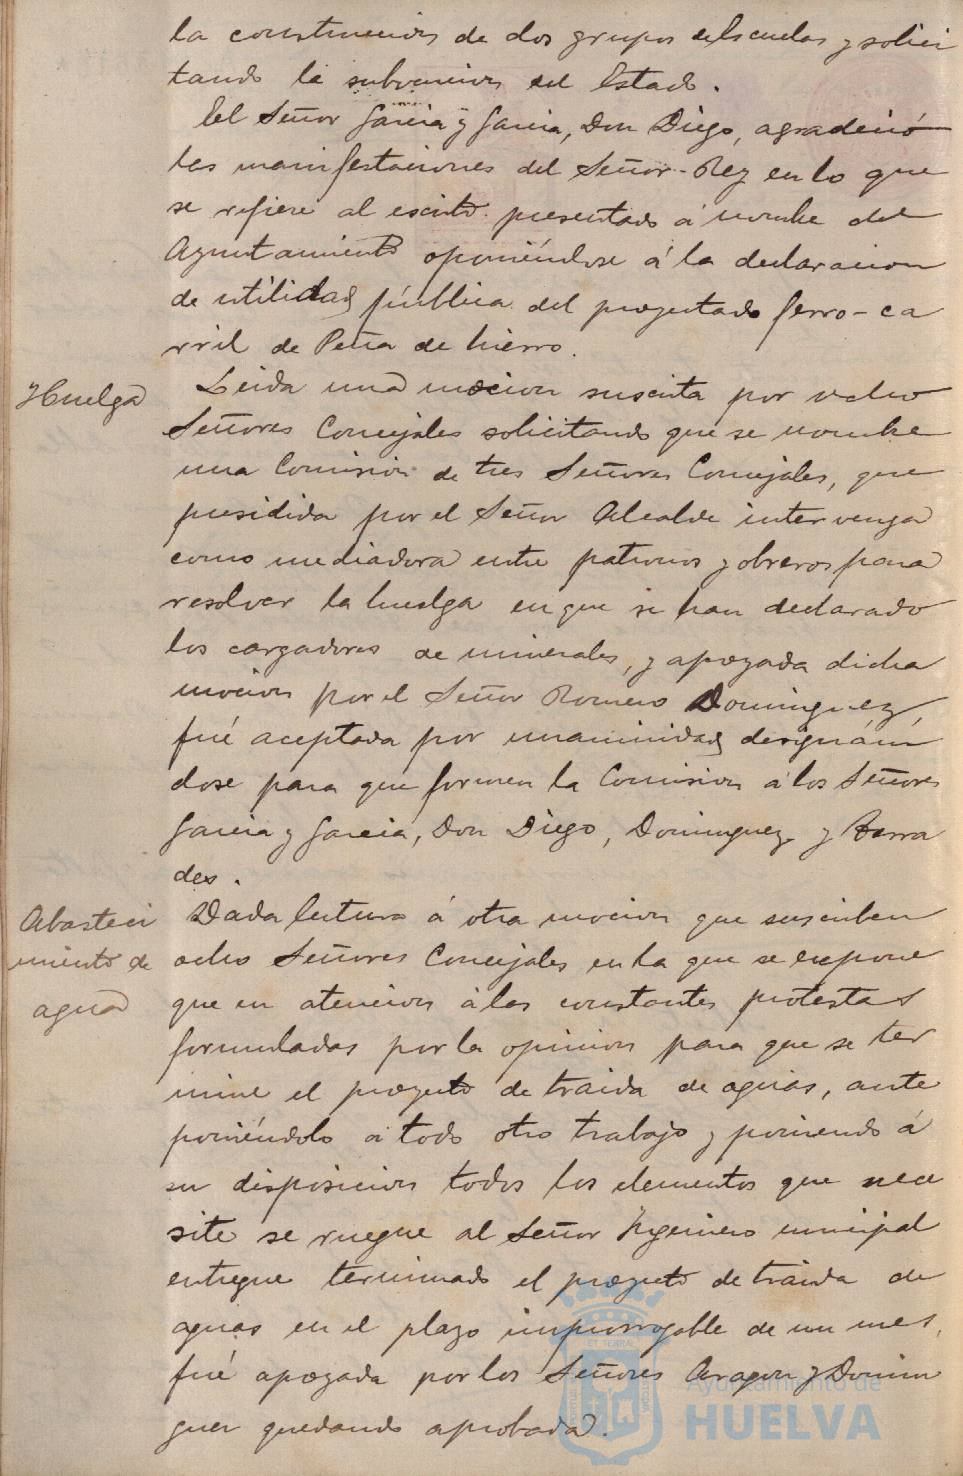 la construccion de dos grupos escuelas y solici
tando la subvencion del Estado.
El Señor Garcia y Garcia, Don Diego, agradeció
las manifestaciones del Señor Rey en lo que
se refiere al escrito presentado á nombre del
Ayuntamiento oponiéndose á la declaracion
de utilidad pública del proyectado ferro-ca
rril de Peña de hierro.
Huelga
Leida una mocion suscrita por ocho
Señores Concejales solicitando que se nombre
una Comision de tres Señores Concejales, que
presidida por el Señor Alcalde intervenga
como mediadora entre patronos y obreros para
resolver la huelga en que se han declarado
los cargadores de minerales, y apoyada dicha
mocion por el Señor Romero Dominguez,
fué aceptada por unanimidad designán
dose para que formen la Comision á los Señores
Garcia y Garcia, Don Diego, Dominguez y Barra
des.
Abasteci
miento de
agua
Dada lectura á otra mocion que suscriben
ocho Señores Concejales en la que se expone
que en atencion á las constantes protestas
formuladas por la opinion para que se ter
mine el proyecto de traida de aguas, ante
poniéndolo á todo otro trabajo y poniendo á
su disposicion todos los elementos que nece
site se ruegue al Señor Ingeniero municipal
entregue terminado el proyecto de traida de
aguas en el plazo improrrogable de un mes,
fué apoyada por los Señores Aragon y Domin
guez quedando aprobada.
Ayuntamiento de
HUELVA